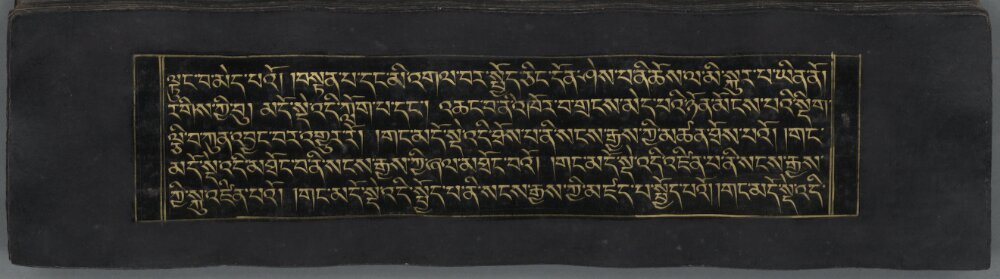 ལྟུང་བ་མེད་པའོ། །བསྟན་པ་དང་མི་འགལ་བར་སྤྱོད་ཅིང་དོན་ཤེས་པ་ནི་ཆོས་ལ་མི་སྐུར་པ་ཡིན་ནོ།
རིགས་ཀྱི་བུ། མདོ་སྡེ་འདི་ཀློག་པ་དང་། འཆང་བ་ནི་འཁོར་བ་གྲངས་མེད་པའི་ཉོན་མོངས་པའི་སྡིག་
ལྟུང་ཀུན་འབྱང་བར་འགྱུར་རོ། །གང་མདོ་སྡེ་འདི་ཐོས་པ་ནི་སངས་རྒྱས་ཀྱི་མཚན་ཐོས་པའོ། །གང་
མདོ་སྡེ་འདི་མཐོང་བ་ནི་སངས་རྒྱས་ཀྱི་ཞལ་མཐོང་བའོ། །གང་མདོ་སྡེ་འདི་འཛིན་པ་ནི་སངས་རྒྱས་
ཀྱི་སྐུ་འཛིན་པའོ། །གང་མདོ་སྡེ་འདི་སྤྱོད་པ་ནི་སངས་རྒྱས་ཀྱི་མཛད་པ་སྤྱོད་པའོ། །གང་མདོ་སྡེ་འདི་